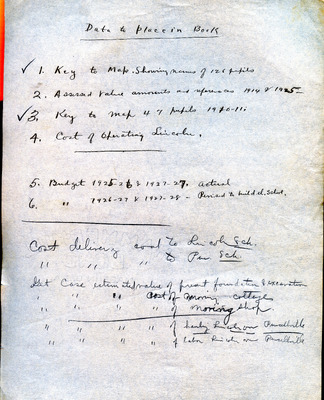 Data to place in Book
✓ 1. Key to Map. Showing names of 126 pupils
2. Assessed Value amounts and references 1914 & 1925
✓ 3. Key to map 47 pupils 1910-11.
4. Cost of Operating Lincoln.
5. Budget 1925-26 & 1927-27. actual
6. " 1926-27 & 1927-28 - Period to build el. School.
Cost delivery coal to Lincoln Sch.
" " " to Pur Sch
Get Case estimated value of present foundation & excavation
" " " Cost of moving cottage
" " " " of moving shop
" " " " of Lincoln or Purcellville
" " " " of labor Lincoln or Purcellville